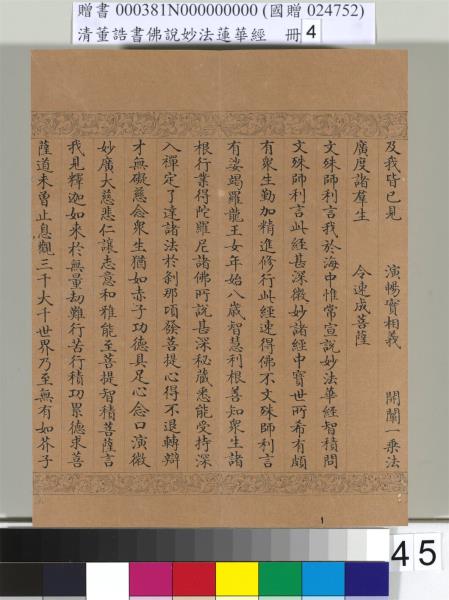 贈書 000381N000000000 (國贈 024752)
清董誥書佛說妙法蓮華經 冊 4
及我皆已見 演暢實相義 開闡一乘法
廣度諸羣生 令速成菩薩
文殊師利言我於海中惟常宣說妙法華經智積問
文殊師利言此經甚深微妙諸經中寶世所希有頗
有衆生勤加精進修行此經速得佛不文殊師利言
有娑竭羅龍王女年始八歲智慧利根善知衆生諸
根行業得陀羅尼諸佛所說甚深秘藏悉能受持深
入禪定了達諸法於剎那頃發菩提心得不退轉辯
才無礙慈念衆生猶如赤子功德具足心念口演微
妙廣大慈悲仁讓志意和雅能至菩提智積菩薩言
我見釋迦如來於無量劫難行苦行積功累德求菩
薩道未曾止息觀三千大千世界乃至無有如芥子
1
45